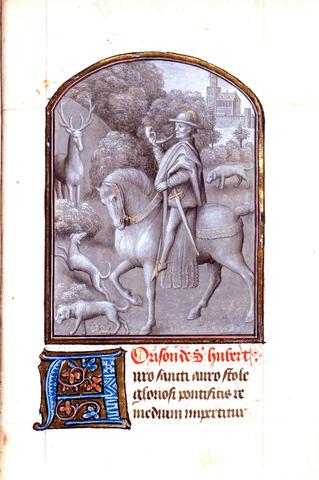 Orison de St hubert
Auro sancti auro stole
gloriosi pontificis re
medium impertitur